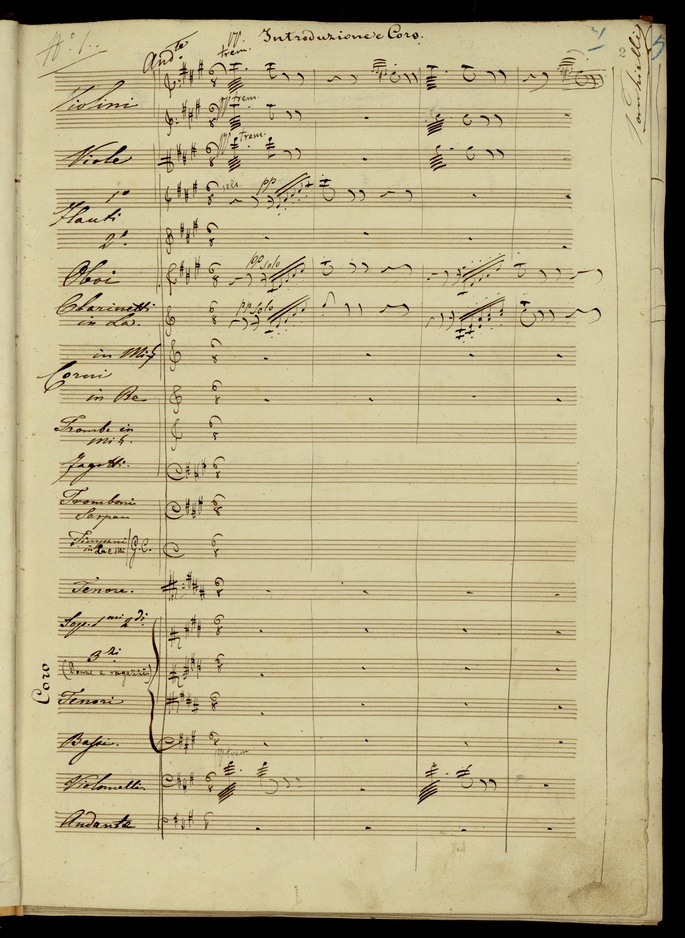 N.º 1..
Introduzione e Coro.
And.te
pp.
trem.
Violini
pp trem.
Viole
pp trem.
1º
solo
pp
Flauti
2º.
Oboi
pp solo
Clarinetti
in La.
pp solo
in Mi♮
Corni
in Re
Trombe in
Mi♮.
Fagotti.
Tromboni
Serpan
Timpani
in La e Mi
G.C.
Tenore.
Sop. 1mi 2di
3zi
(Donne e ragazzi)
Coro
Tenori
Bassi.
pp trem
Violoncelli.
Andante
2